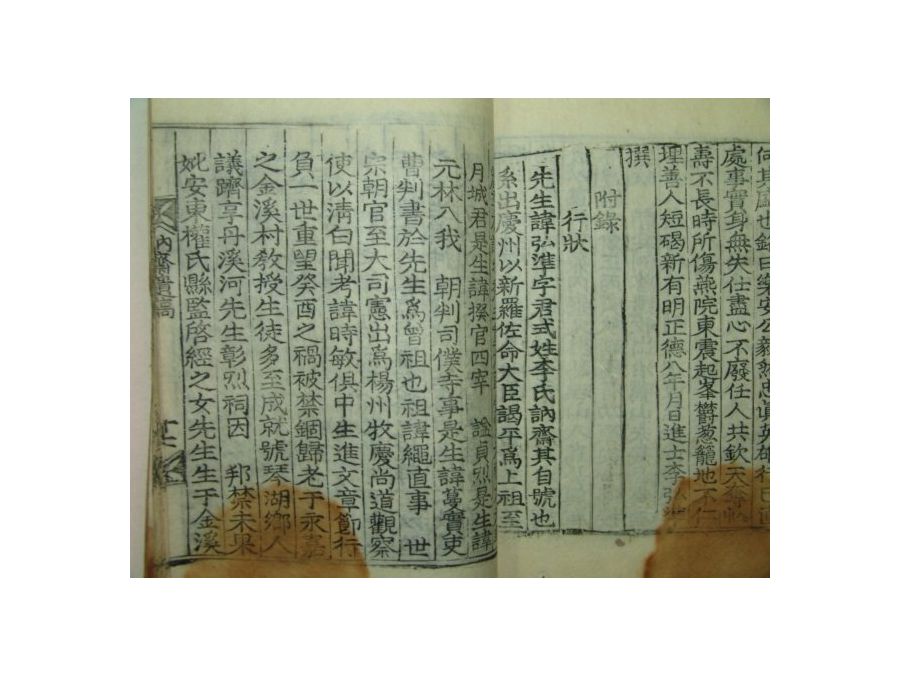 何其
處事實身無失仕盡心不廢任人共欽天奪
壽不長時所傷燕院東震起峯欝葱籠地不仁
埋善人短碣新有明正德八年月日進士李弘
撰
附錄
行狀
先生諱弘準字君式姓李氏訥齋其自號也
系出慶州以新羅佐命大臣謁平爲上祖至
月城君是生諱撰官四宰 諡貞烈是生諱
元林入我 朝判司僕寺事是生諱蔓實吏
曹判書於先生爲曾祖也祖諱繩直事 世
宗朝官至大司憲出爲楊州牧慶尚道觀察
使以淸白聞考諱時敏俱中生進文章節行
負一世重望癸酉之禍被禁錮歸老于永嘉
之金溪村敎授生徒多至成就號琴湖鄕人
議躋享丹溪河先生彰烈祠因 邦禁未果
妣安東權氏縣監啓經之女先生生于金溪
內齋遺稿